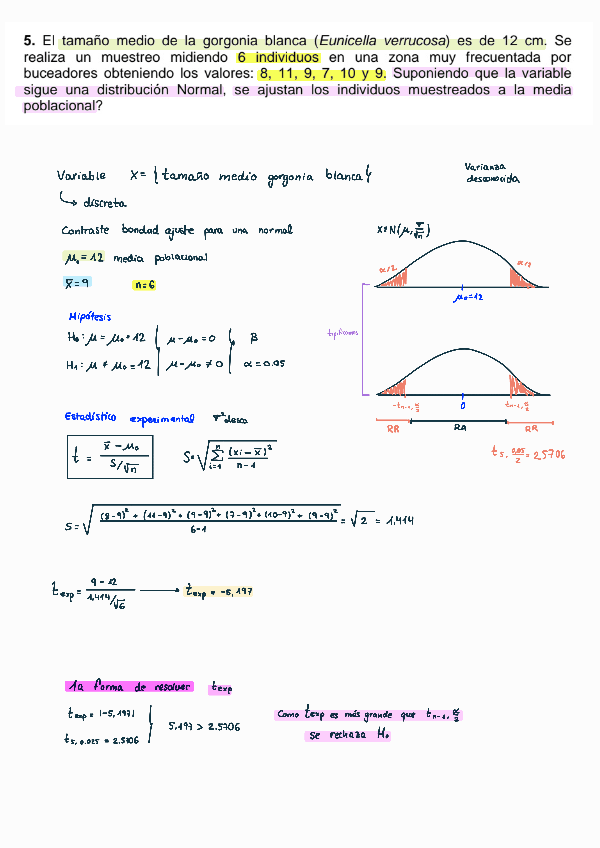 5. El tamaño medio de la gorgonia blanca (Eunicella verrucosa) es de 12 cm. Se
realiza un muestreo midiendo 6 individuos en una zona muy frecuentada por
buceadores obteniendo los valores: 8, 11, 9, 7, 10 y 9. Suponiendo que la variable
sigue una distribución Normal, se ajustan los individuos muestreados a la media
poblacional?
Variable X = { tamaño medio gorgonia blanca }
↳ discreta
Varianza
desconocida
Contraste bondad ajuste para una normal
μ₀ = 12 media poblacional
x̄ = 9 n = 6
X≡N(μ, σ/√n)
α/2 α/2
μ₀ = 12
tipificamos
Hipótesis
H₀ : μ = μ₀ = 12 | μ - μ₀ = 0 | β
H₁ : μ ≠ μ₀ = 12 | μ - μ₀ ≠ 0 | α = 0.05
-t n-1, α/2 0 t n-1, α/2
RR RA RR
t 5, 0.05/2 = 2,5706
Estadístico experimental σ² desco
t = (x̄ - μ₀) / (S/√n) S = √( Σ i=1 n (xi - x̄)² / (n - 1) )
S = √( ((8-9)² + (11-9)² + (9-9)² + (7-9)² + (10-9)² + (9-9)²) / (6-1) ) = √2 = 1,414
t exp = (9 - 12) / (1,414/√6) → t exp = -5,197
1a forma de resolver t exp
t exp = |-5,197|
t 5, 0.025 = 2.5706
5.197 > 2.5706
Como t exp es más grande que t n-1, α/2
se rechaza H₀